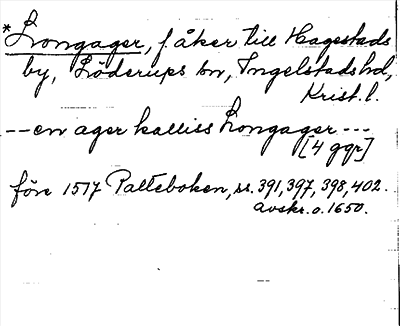 *Longager, f. åker till Hagestads
by, Löderups sn, Ingelstads hd,
Krist. l.
-- en ager kalliss Longager ---
[4 ggr]
före 1517 Palteboken, ss. 391, 397, 398, 402.
avskr. o. 1650.